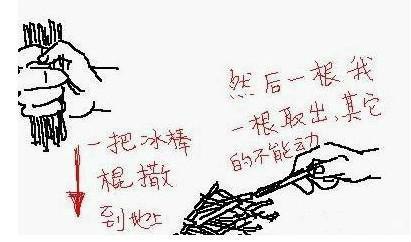 一把冰棒
棍撒
到地上
然后一根我
一根取出,其它
的不能动